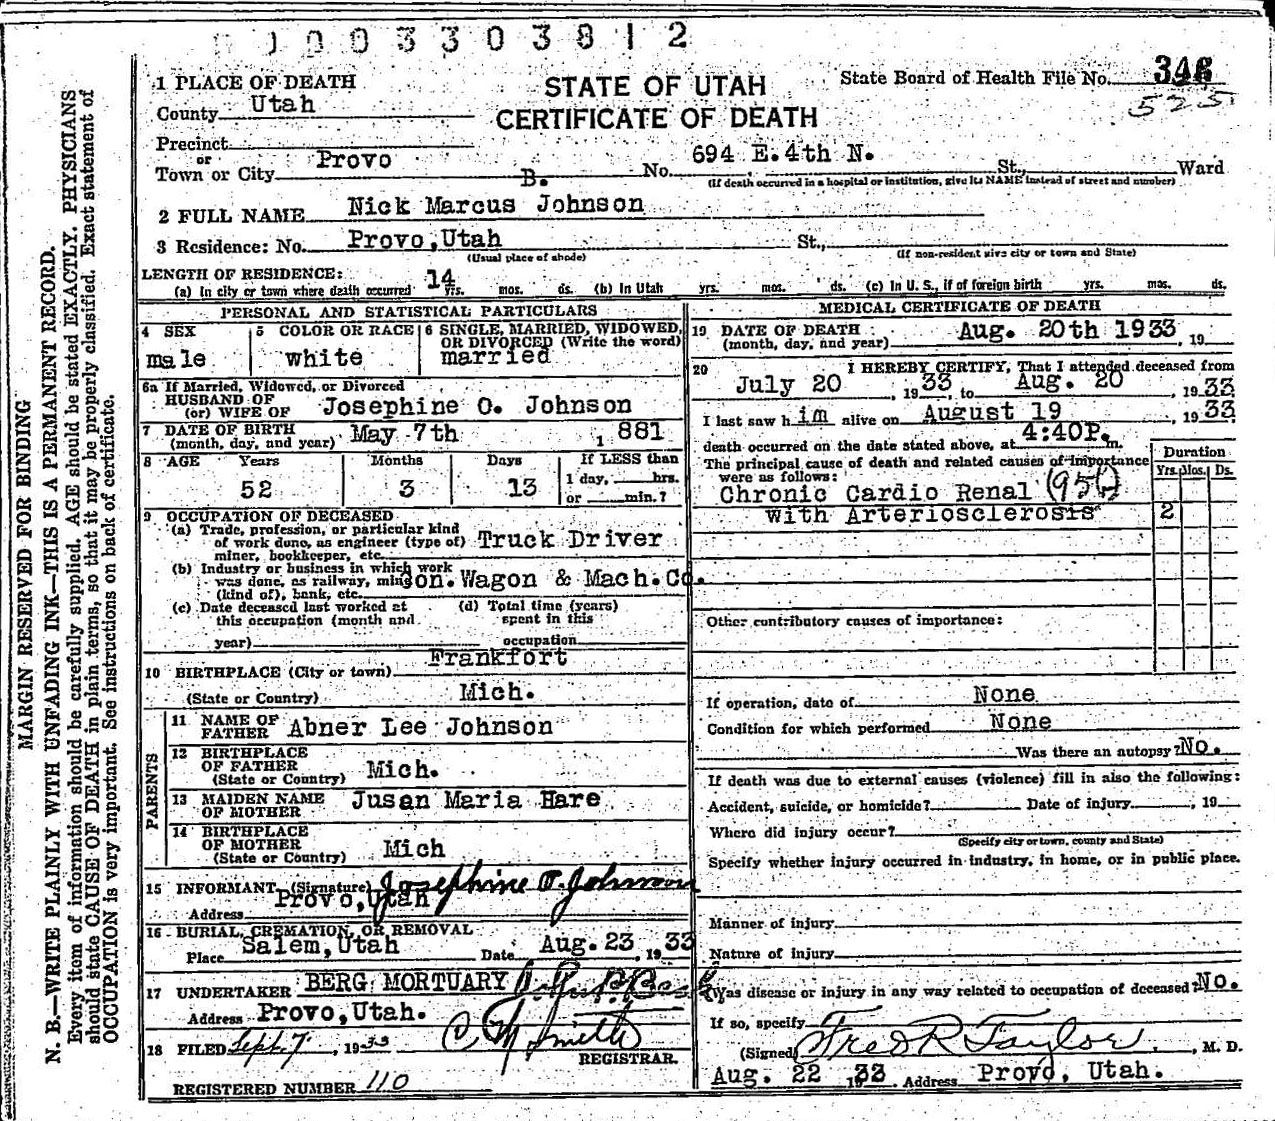 0003303812
1 PLACE OF DEATH
STATE OF UTAH
CERTIFICATE OF DEATH
State Board of Health File No. 346
525
County Utah
Precinct
or
Town or City Provo
B. No. 694 E. 4th N. St., Ward
(If death occurred in a hospital or institution, give its NAME instead of street and number)
2 FULL NAME Nick Marcus Johnson
3 Residence: No. Provo, Utah St.,
(Usual place of abode) (If non-resident give city or town and State)
LENGTH OF RESIDENCE:
(a) In city or town where death occurred 14 yrs. mos. ds. (b) In Utah yrs. mos. ds. (c) In U. S., if of foreign birth yrs. mos. ds.
PERSONAL AND STATISTICAL PARTICULARS
4 SEX male
5 COLOR OR RACE white
6 SINGLE, MARRIED, WIDOWED, OR DIVORCED (Write the word) married
6a If Married, Widowed, or Divorced
HUSBAND OF
(or) WIFE OF Josephine O. Johnson
7 DATE OF BIRTH
(month, day, and year) May 7th 1881
8 AGE Years Months Days If LESS than
52 3 13 1 day, hrs.
or min.?
9 OCCUPATION OF DECEASED
(a) Trade, profession, or particular kind
of work done, as engineer (type of) Truck Driver
miner, bookkeeper, etc.
(b) Industry or business in which work
was done, as railway, min on. Wagon & Mach. Co.
(kind of), bank, etc.
(c) Date deceased last worked at
this occupation (month and
year)
(d) Total time (years)
spent in this
occupation
10 BIRTHPLACE (City or town) Frankfort
(State or Country) Mich.
PARENTS
11 NAME OF
FATHER Abner Lee Johnson
12 BIRTHPLACE
OF FATHER
(State or Country) Mich.
13 MAIDEN NAME
OF MOTHER Jusan Maria Hare
14 BIRTHPLACE
OF MOTHER
(State or Country) Mich
15 INFORMANT (Signature) Josephine O. Johnson
Address Provo, Utah
16 BURIAL, CREMATION, OR REMOVAL
Place Salem, Utah Date Aug. 23, 1933
17 UNDERTAKER BERG MORTUARY
Address Provo, Utah.
18 FILED Sept. 7, 1933 C M Smith
REGISTRAR.
REGISTERED NUMBER 110
MEDICAL CERTIFICATE OF DEATH
19 DATE OF DEATH
(month, day, and year) Aug. 20th 1933, 19
20 I HEREBY CERTIFY, That I attended deceased from
July 20, 1933, to Aug. 20, 1933
I last saw him alive on August 19, 1933
death occurred on the date stated above, at 4:40P.m.
The principal cause of death and related causes of importance
were as follows:
Chronic Cardio Renal
with Arteriosclerosis
Duration
Yrs. Mos. Ds.
2
Other contributory causes of importance:
If operation, date of None
Condition for which performed None
Was there an autopsy? No.
If death was due to external causes (violence) fill in also the following:
Accident, suicide, or homicide? Date of injury, 19
Where did injury occur?
(Specify city or town, county and State)
Specify whether injury occurred in industry, in home, or in public place.
Manner of injury
Nature of injury
Was disease or injury in any way related to occupation of deceased? No.
If so, specify
(Signed) Fred R Taylor, M. D.
Aug. 22 1933 Address Provo, Utah.
MARGIN RESERVED FOR BINDING
N. B.—WRITE PLAINLY WITH UNFADING INK—THIS IS A PERMANENT RECORD.
Every item of information should be carefully supplied. AGE should be stated EXACTLY. PHYSICIANS
should state CAUSE OF DEATH in plain terms, so that it may be properly classified. Exact statement of
OCCUPATION is very important. See instructions on back of certificate.